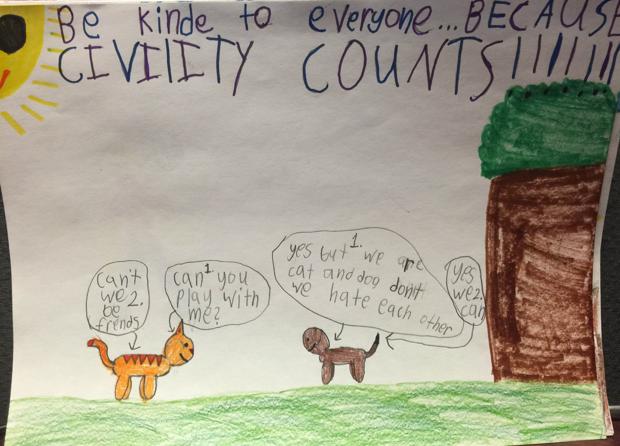 Be kinde to everyone...BECAUSE
CIVILITY COUNTS!!!!!!!
can't
we 2.
be
frends
can 1. you
play with
me?
yes but 1. we are
cat and dog don't
we hate each other
yes
we 2.
can